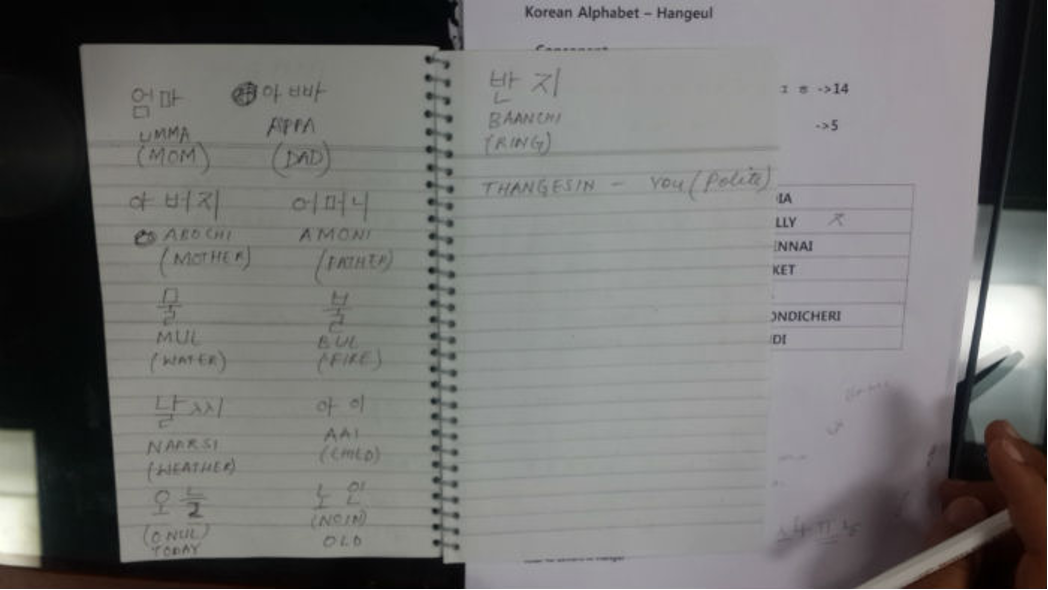 엄마 아빠
UMMA APPA
(MOM) (DAD)
아버지 어머니
ABOCHI AMONI
(MOTHER) (FATHER)
물 불
MUL BUL
(WATER) (FIRE)
날씨 아이
NAARSI AAI
(WEATHER) (CHILD)
오늘 노인
(ONUL) (NOIN)
TODAY OLD
반지
BAANCHI
(RING)
THANGESIN - YOU (Polite)
Korean Alphabet – Hangeul
Consonant
ㅎ ->14
->5
LLY ㅈ
ENNAI
KET
ONDICHERI
DI